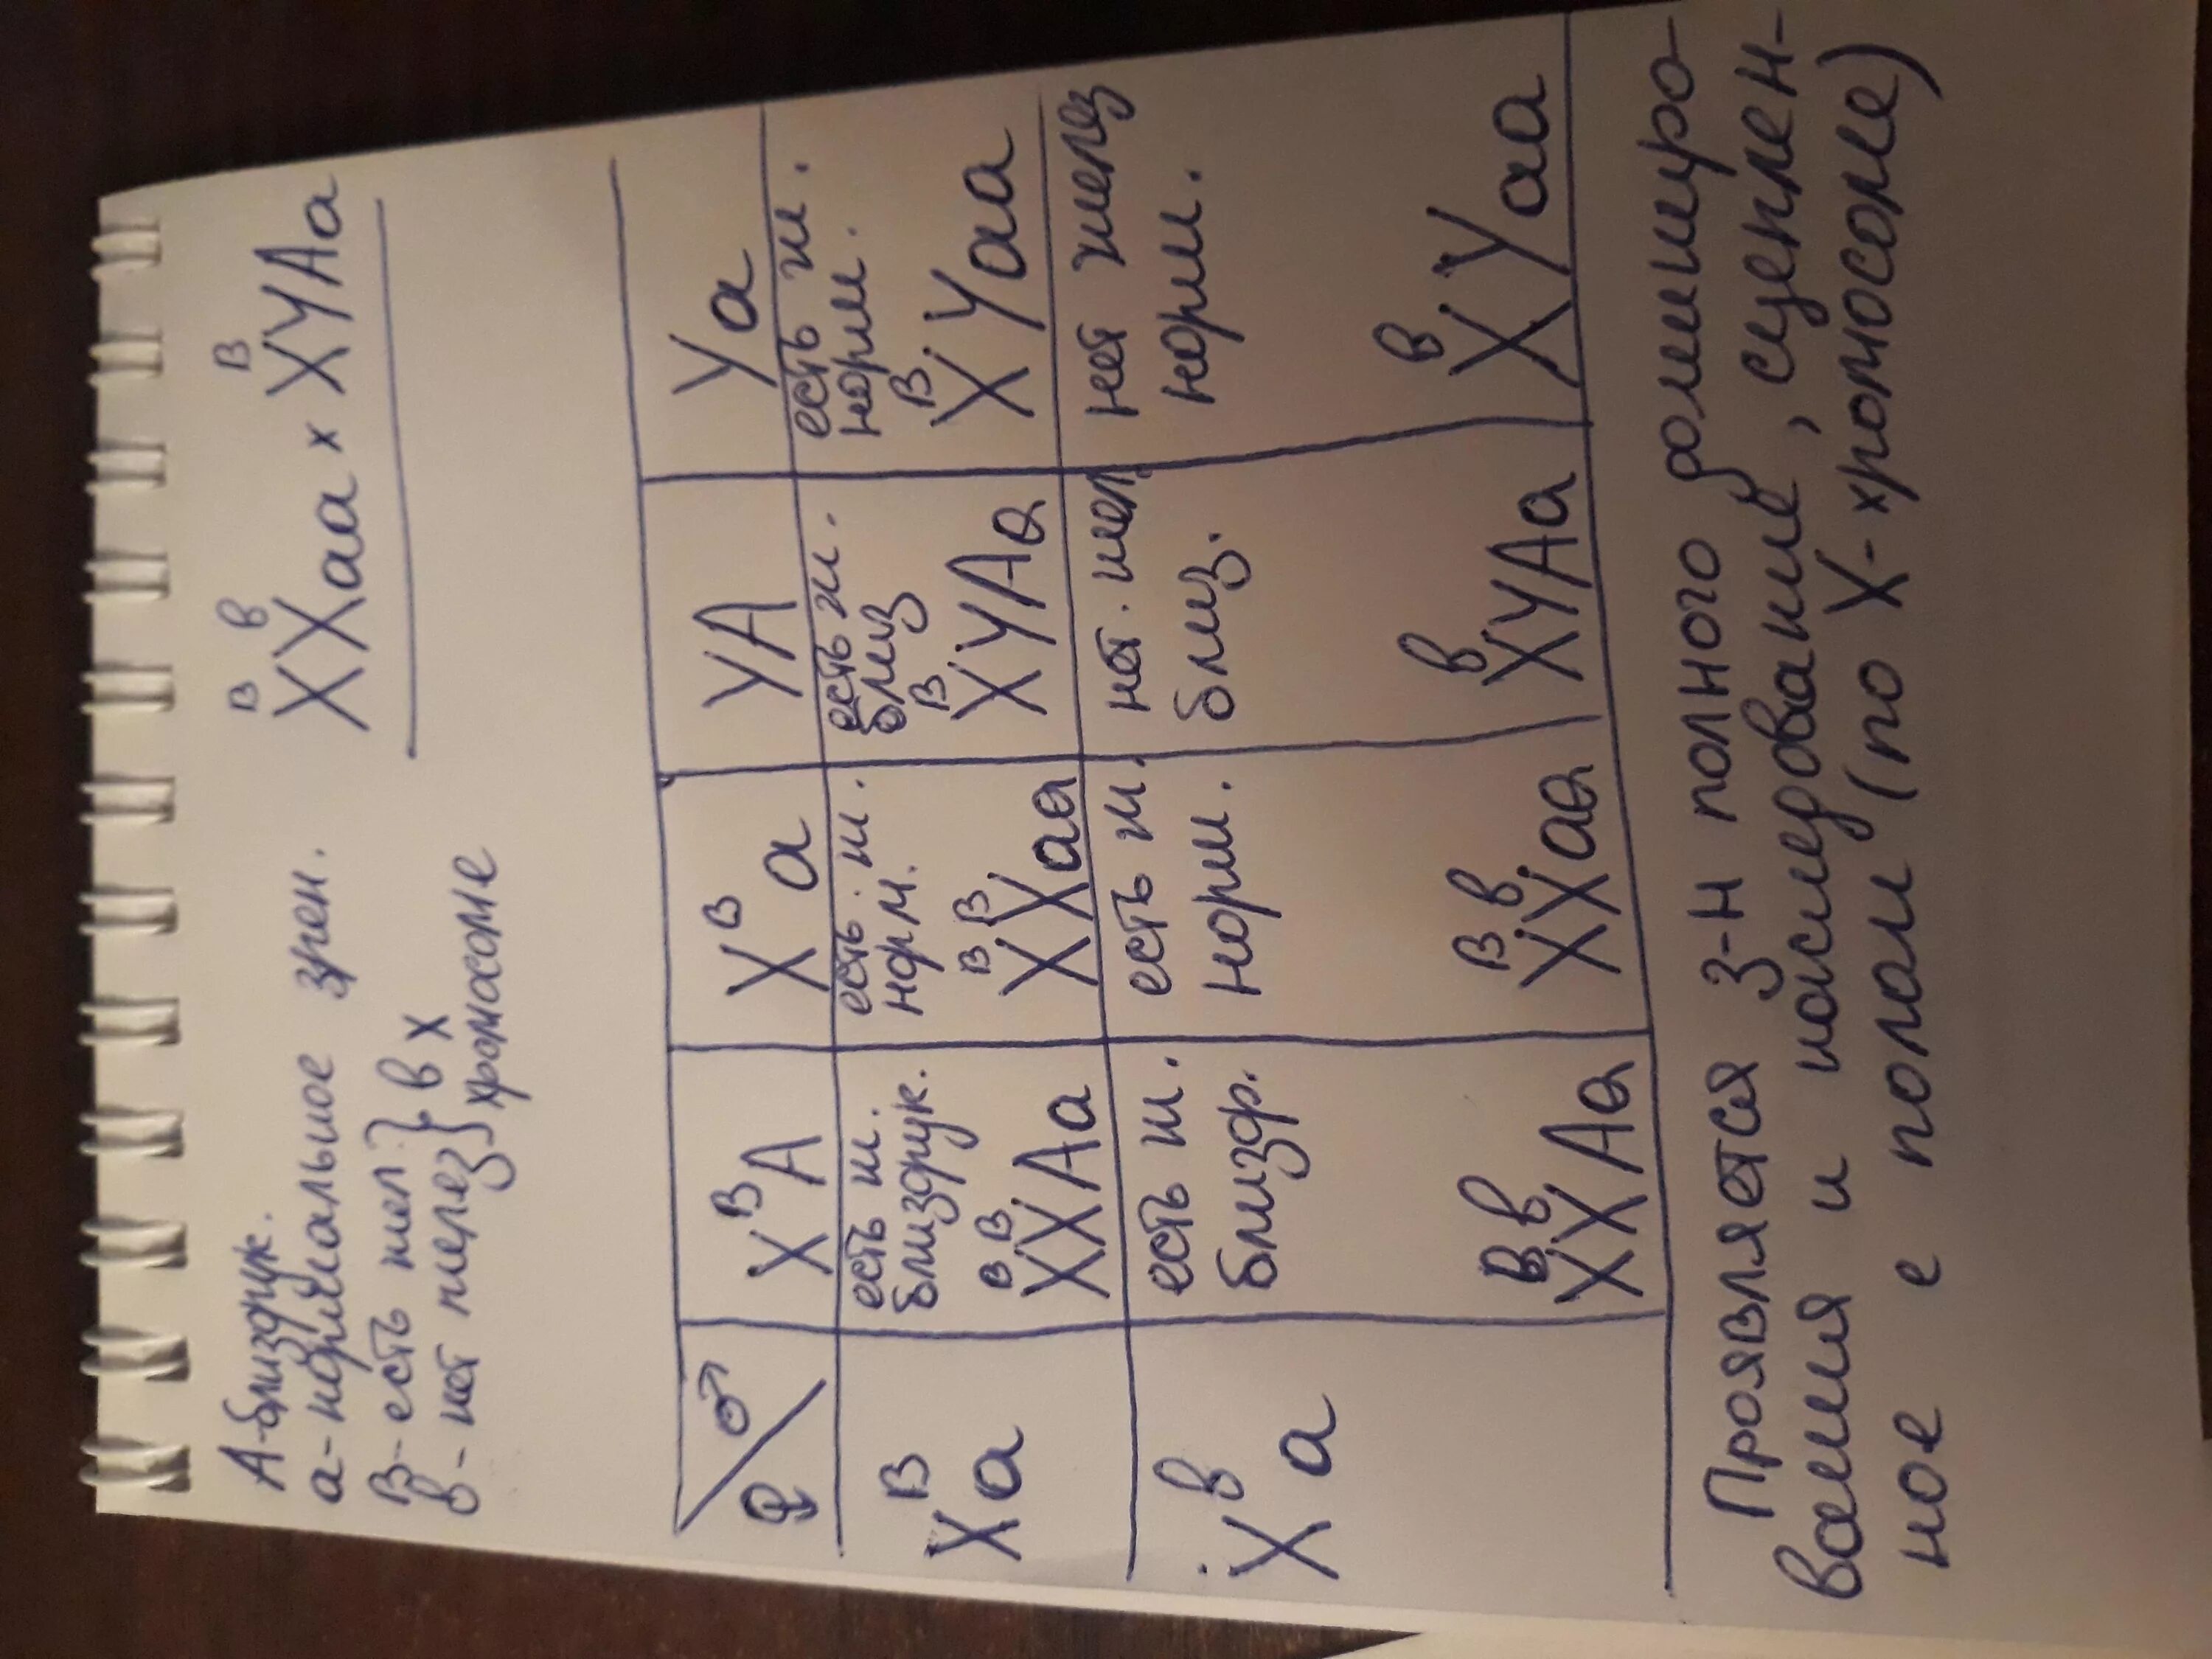 А-близорук.
а-нормальное зрен.
В-есть жел.} в х
в-нет желез} хромосоме
В в В
XXaa × XYAa
♀ ♂ Xᴮ A Xᴮ a YA Ya
Xᴮ a
есть ж. близорук. XᴮXᴮAa
есть ж. норм. XᴮXᴮaa
есть ж. близ XᴮYAa
есть ж. норм. XᴮYaa
Xᵇ a
есть ж. близор. XᴮXᵇAa
есть ж. норм. XᴮXᵇaa
нет. жел. близ. XᵇYAa
нет желез норм. XᵇYaa
Проявляется З-Н полного доминиро-
вания и наследование, сцеплен-
ное с полом (по Х-хромосоме)